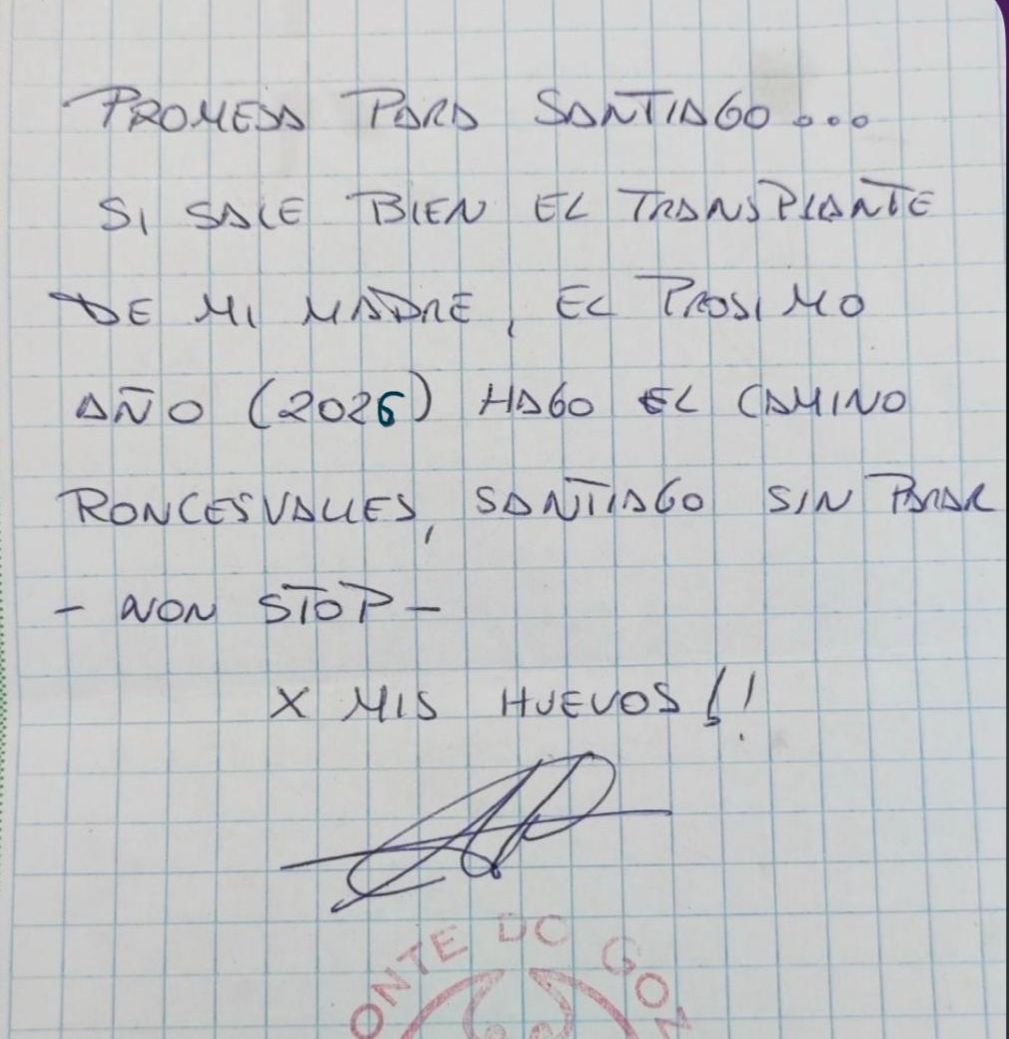 PROMESA PARA SANTIAGO...
SI SALE BIEN EL TRANSPLANTE
DE MI MADRE, EL PROSIMO
AÑO (2026) HAGO EL CAMINO
RONCESVALLES, SANTIAGO SIN PARAR
- NON STOP -
X MIS HUEVOS!!
ONTE DO GOZ